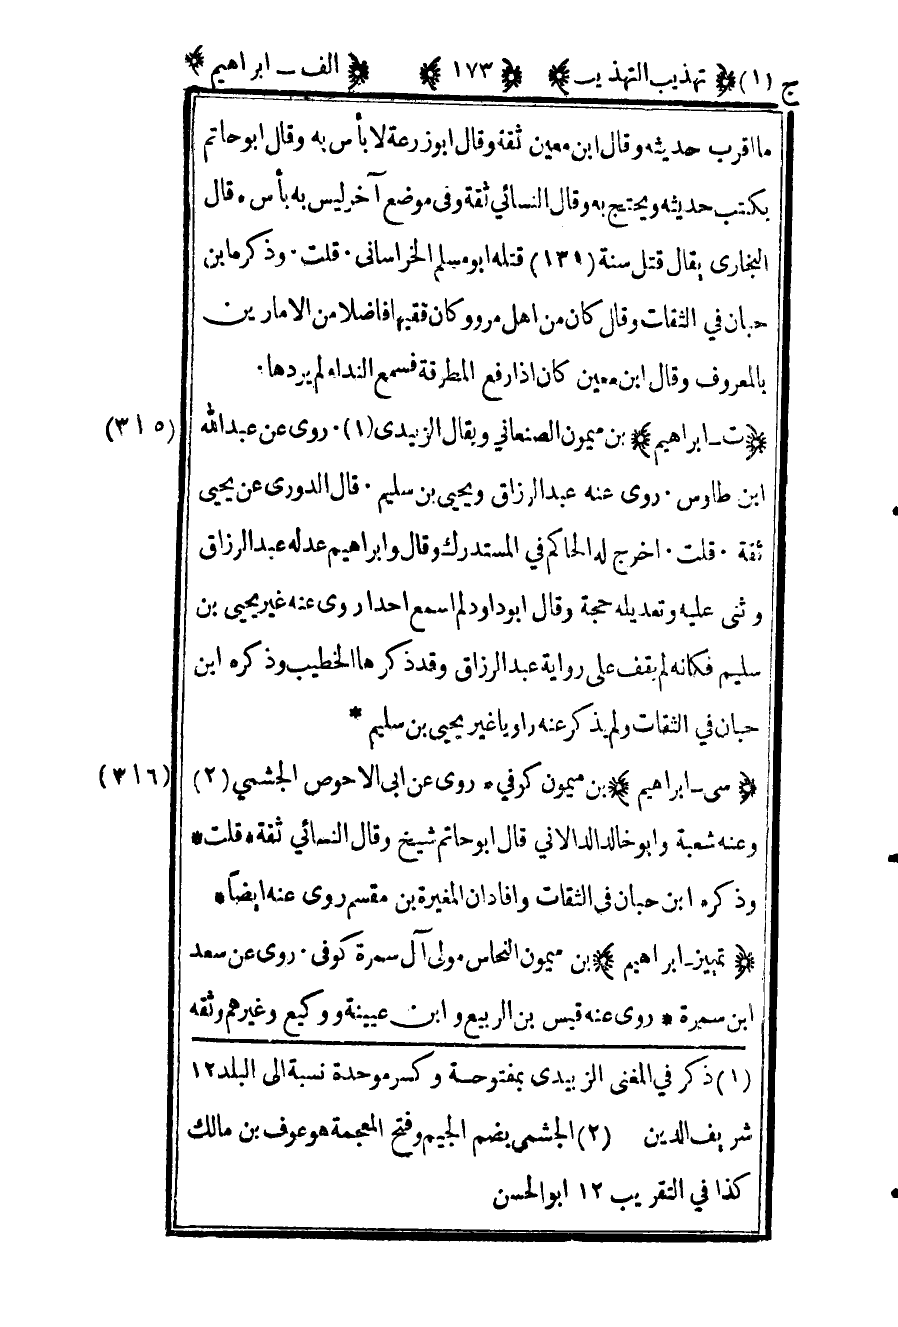 ج (١) ﴿ تهذيب التهذيب ﴾ ﴿ ١٧٣ ﴾ ﴿ الف ــ ابراهيم ﴾
ما اقرب حديثه وقال ابن معين ثقة وقال ابوزرعة لا بأس به وقال ابوحاتم
يكتب حديثه ويحتج به وقال النسائي ثقة وفى موضع آخر ليس به بأس ٠ قال
البخارى يقال قتل سنة (١٣١) قتله ابومسلم الخراسانى ٠ قلت ٠ وذكره ابن
حبان في الثقات وقال كان من اهل مرو وكان فقيها فاضلا من الامارين
بالمعروف وقال ابن معين كان اذا رفع المطرقة فسمع النداء لم يردها ٠
﴿ ت ـ ابراهيم ﴾ بن ميمون الصنعاني ويقال الزبيدى (١) ٠ روى عن عبدالله (٣١٥)
ابن طاوس ٠ روى عنه عبدالرزاق ويحيى بن سليم ٠ قال الدورى عن يحيى
ثقة ٠ قلت ٠ اخرج له الحاكم في المستدرك وقال وابراهيم عدله عبدالرزاق
وثنى عليه وتعديله حجة وقال ابوداود لم اسمع احدا روى عنه غير يحيى بن
سليم فكانه لم يقف على رواية عبدالرزاق وقد ذكرها الخطيب وذكره ابن
حبان في الثقات ولم يذكر عنه راويا غير يحيى بن سليم *
﴿ سى ـ ابراهيم ﴾ بن ميمون كوفي ٠ روى عن ابى الاحوص الجشمي (٢) (٣١٦)
وعنه شعبة وابو خالد الدالاني قال ابوحاتم شيخ وقال النسائي ثقة * قلت *
وذكره ابن حبان في الثقات وافاد ان المغيرة بن مقسم روى عنه ايضاً *
﴿ تمييز ـ ابراهيم ﴾ بن ميمون النحاس مولى آل سمرة كوفى ٠ روى عن سعد
ابن سمرة * روى عنه قيس بن الربيع وابن عيينة ووكيع وغيرهم وثقه
(١) ذكر في المغنى الزبيدى بمفتوحة وكسر موحدة نسبة الى البلد ١٢
شريف الدين (٢) الجشمي بضم الجيم وفتح المعجمة هو عوف بن مالك
كذا في التقريب ١٢ ابوالحسن